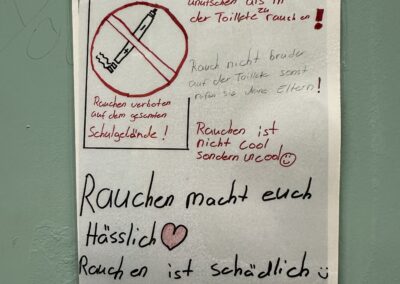 als in
der Toilette zu rauchen!
Rauch nicht bruder
auf der Toilette sonst
rufen sie deine Eltern!
Rauchen verboten
auf dem gesamten
Schulgelände!
Rauchen ist
nicht cool
sondern uncool
Rauchen macht euch
Hässlich
Rauchen ist schädlich